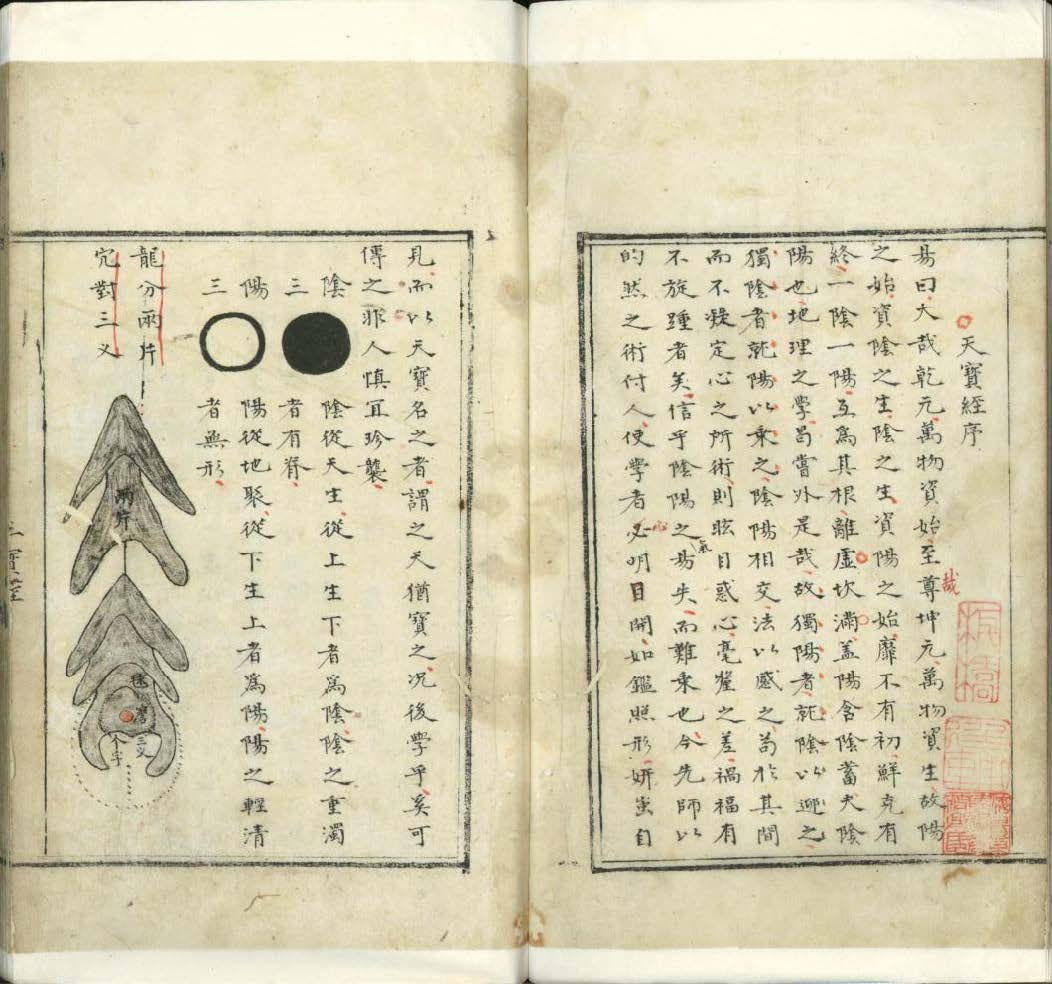 天寶經序
易曰大哉乾元萬物資始至尊坤元萬物資生故陽
哉
之始資陰之生陰之生資陽之始靡不有初鮮克有
終一陰一陽互為其根離虛坎滿盖陽含陰蓄夫陰
陽也地理之學曷嘗外是哉故獨陽者就陰以迎之
獨陰者就陽以乘之陰陽相交法以感之苟於其間
而不凝定心之所術則眩目惑心毫釐之差禍福有
不旋踵者矣信乎陰陽之易失而難乘也今先師以
氣
的然之術付人使學者必明目開如鑑照形妍蚩自
心
見而以天寶名之者謂之天猶寶之况後學乎奚可
傳之非人慎宜珍襲
陰 陰從天生從上生下者為陰陰之重濁
三 者有脊
陽 陽從地聚從下生上者為陽陽之輕清
三 者無形
龍分兩片
穴對三义
兩片
三义
个字
三寶經